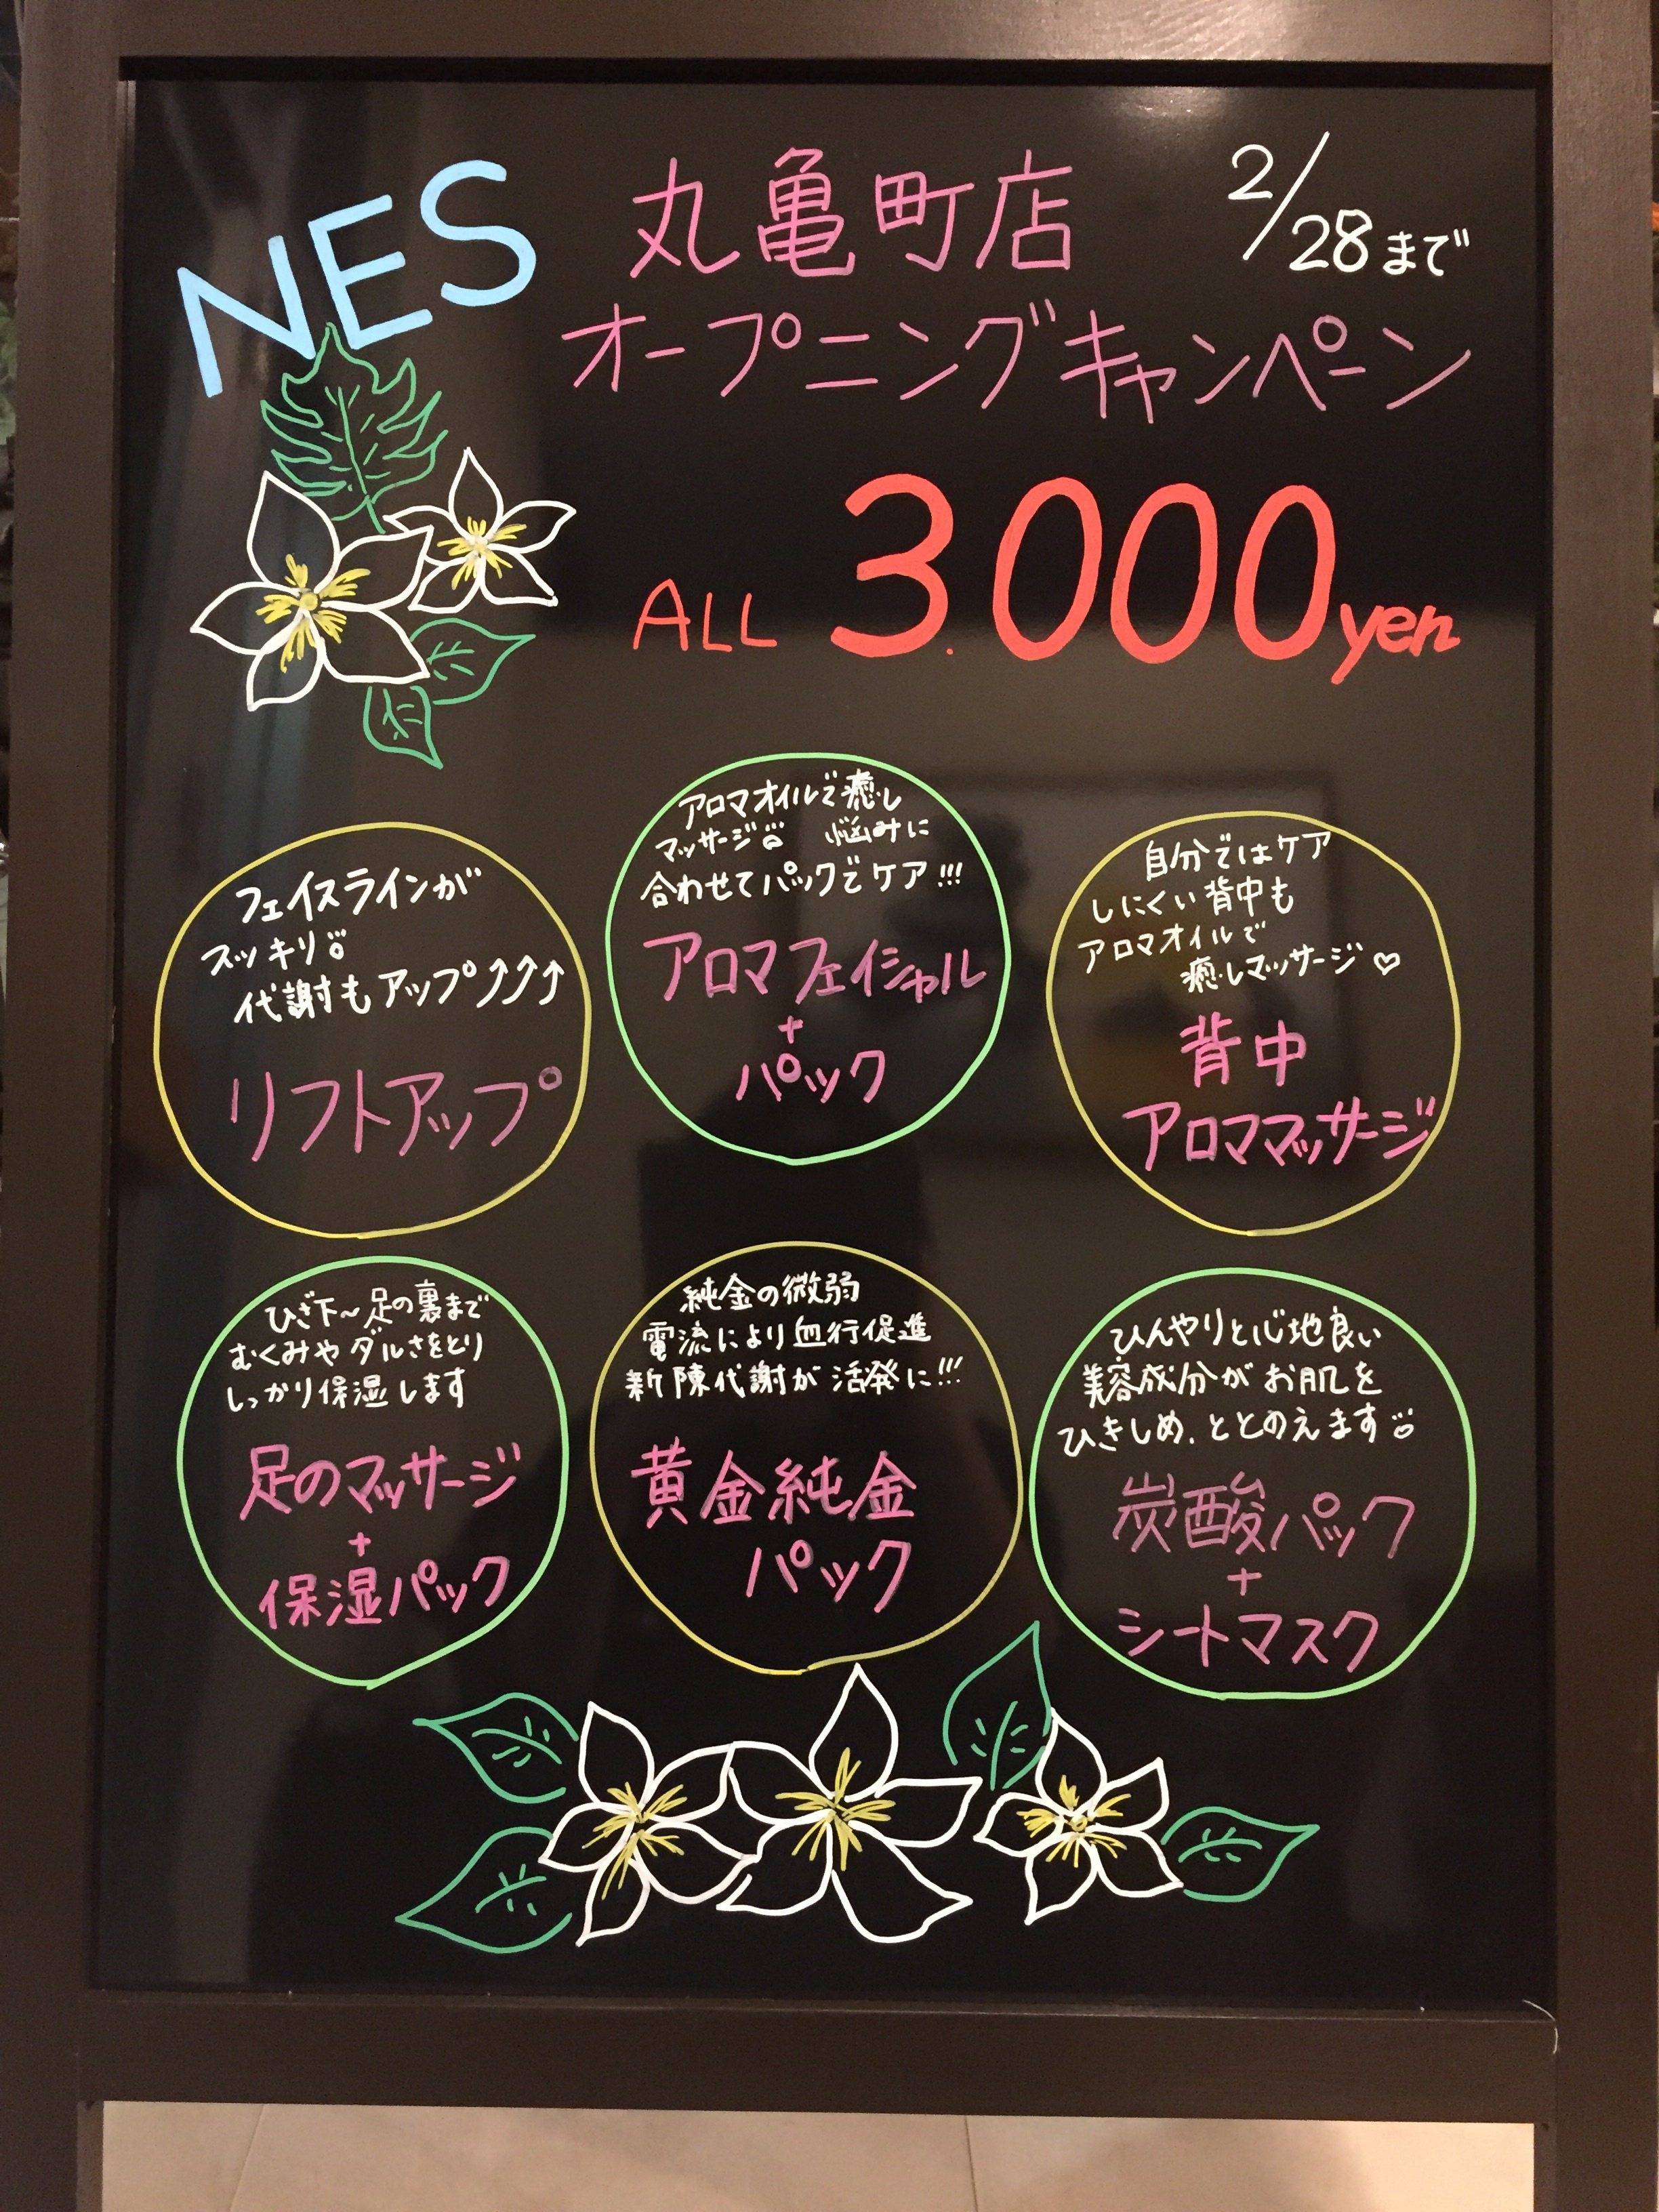 NES
丸亀町店
2/28まで
オープニングキャンペーン
ALL 3.000yen
フェイスラインが
スッキリ
代謝もアップ⤴⤴⤴
リフトアップ
アロマオイルで癒し
マッサージ 悩みに
合わせてパックでケア!!!
アロマフェイシャル
+
パック
自分ではケア
しにくい背中も
アロマオイルで
癒しマッサージ♡
背中
アロママッサージ
ひざ下~足の裏まで
むくみやダルさをとり
しっかり保湿します
足のマッサージ
+
保湿パック
純金の微弱
電流により血行促進
新陳代謝が活発に!!!
黄金純金
パック
ひんやりと心地良い
美容成分がお肌を
ひきしめ、ととのえます
炭酸パック
+
シートマスク